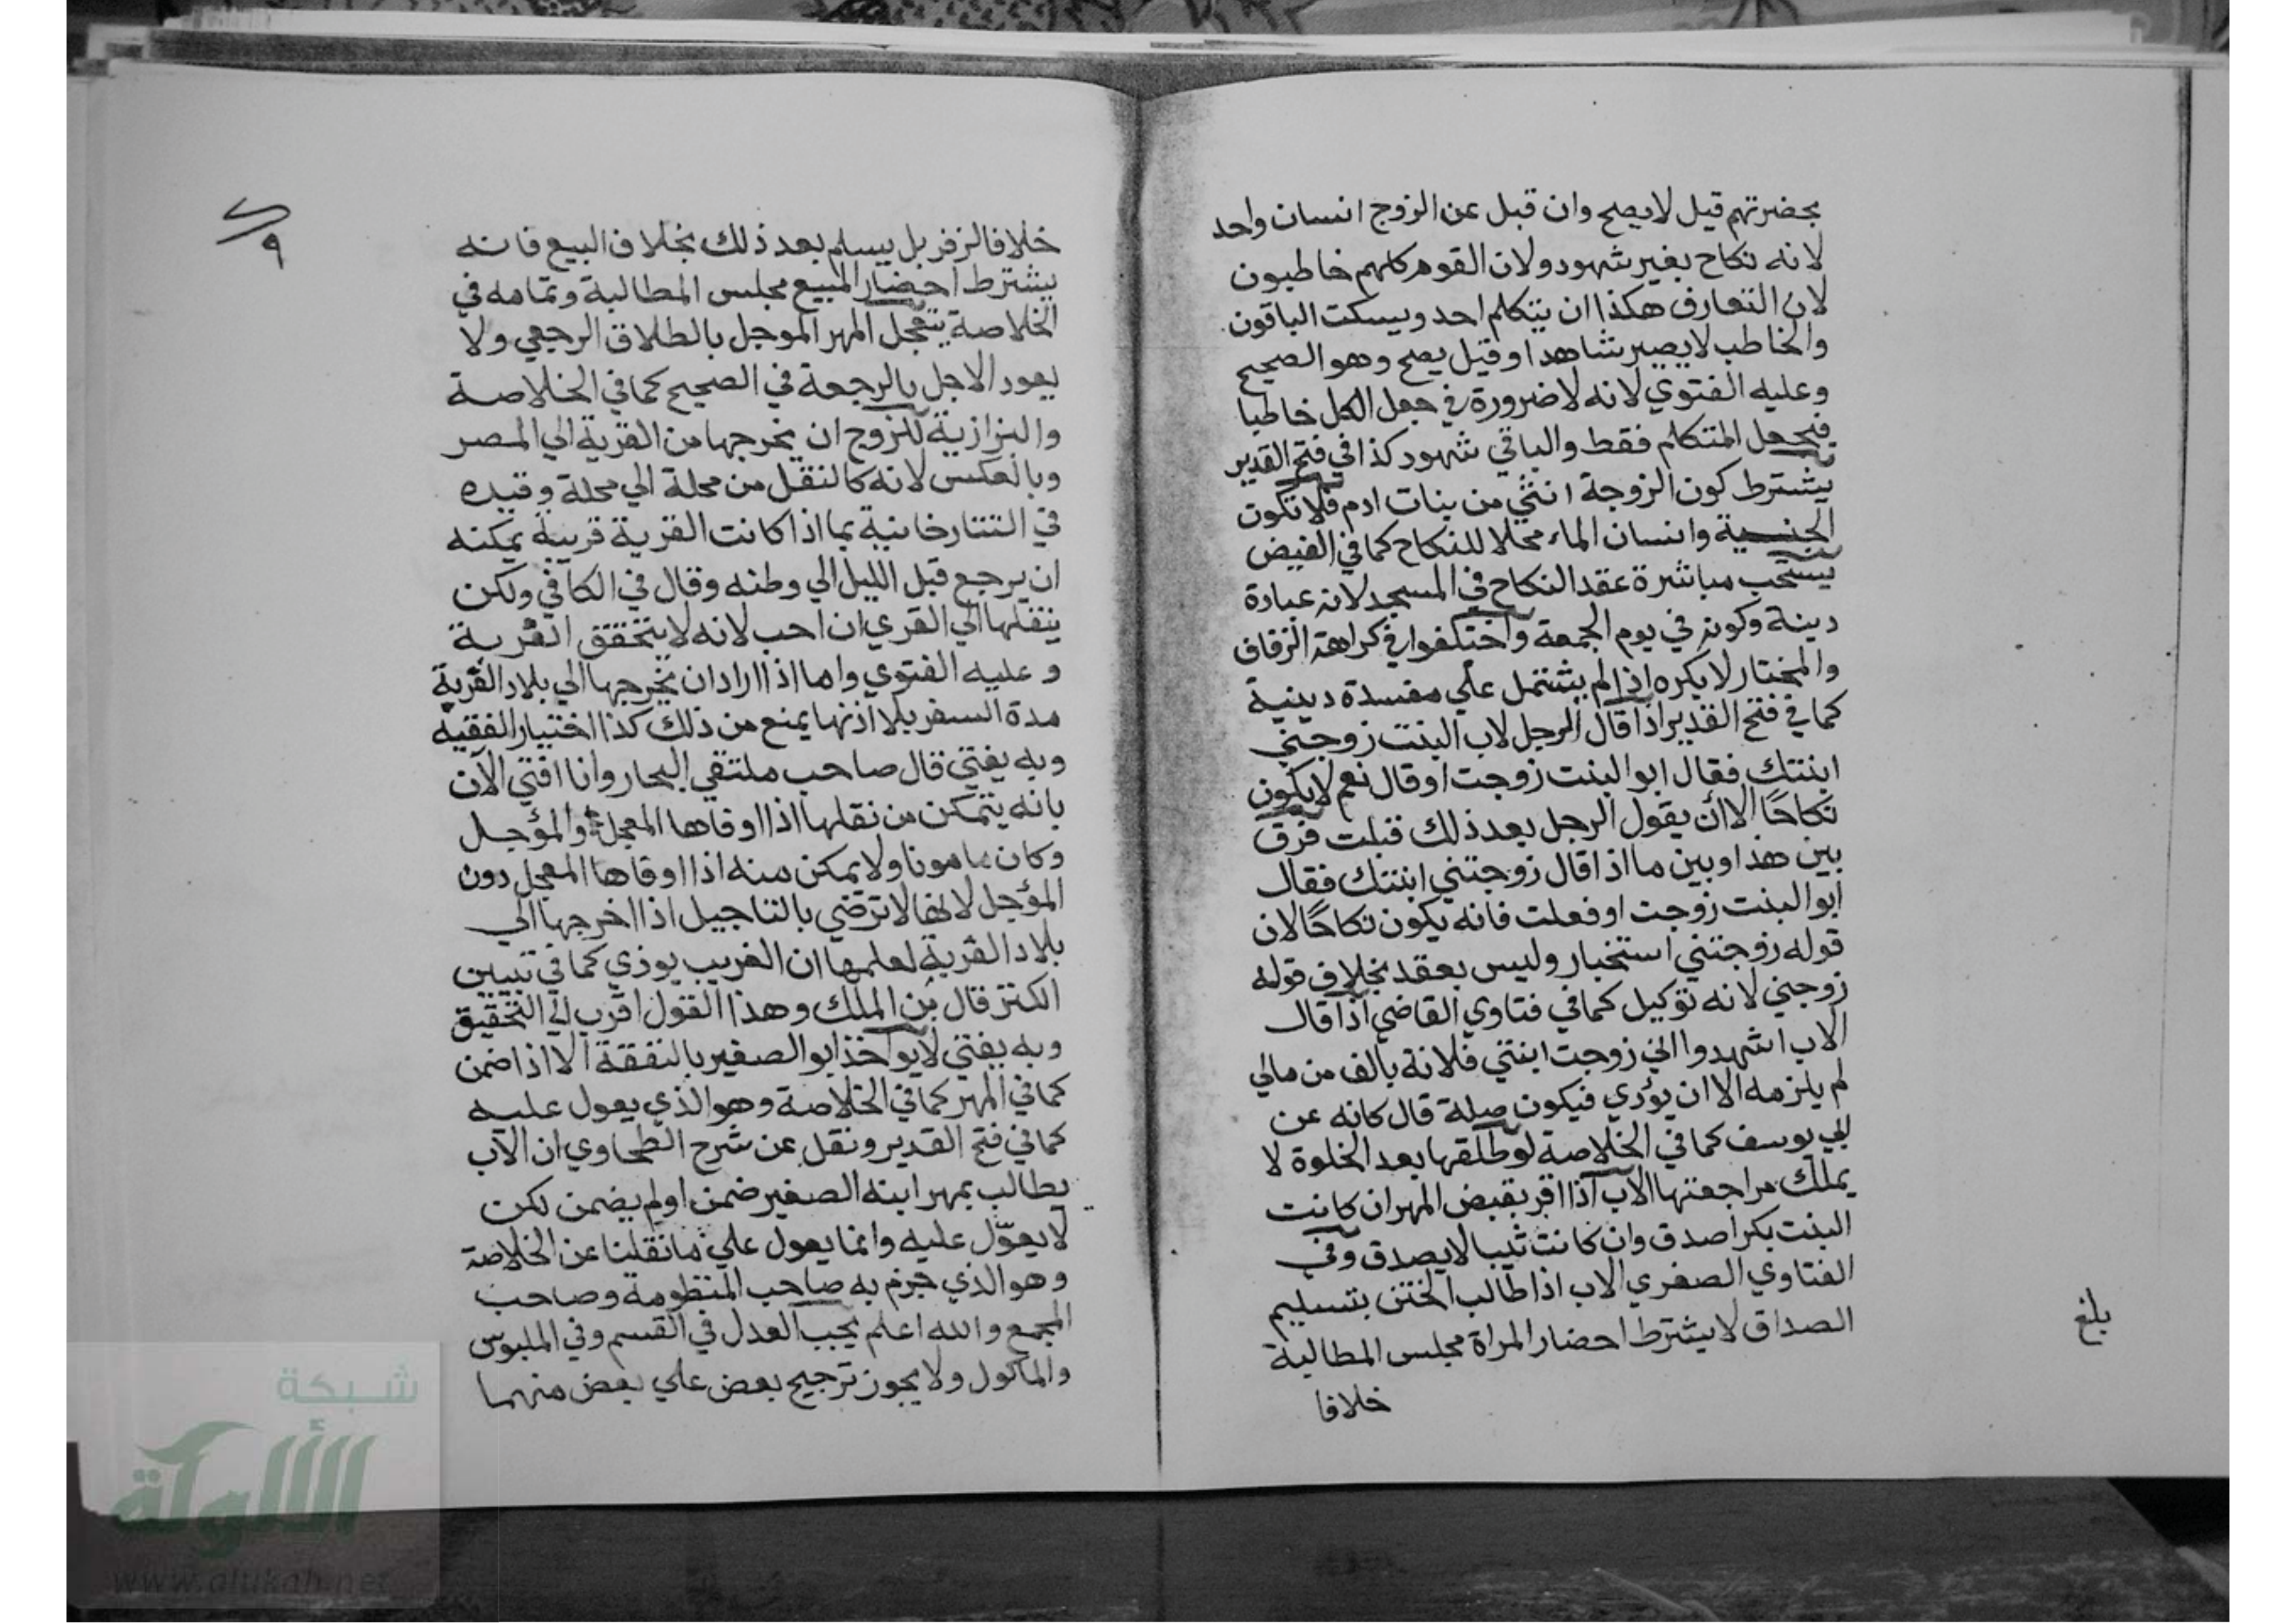 بحضرتهم قيل لا يصح وان قبل عن الزوج انسان واحد
لانه نكاح بغير شهود ولان القوم كلهم خاطبون
لان التعارف هكذا ان يتكلم احد ويسكت الباقون
والخاطب لا يصير شاهدا وقيل يصح وهو الصحيح
وعليه الفتوي لانه لا ضرورة في جعل الكل خاطبا
فيجعل المتكلم فقط والباقي شهود كذا في فتح القدير
يشترط كون الزوجة انثي من بنات ادم فلا تكون
الجنية وانسان الماء محلا للنكاح كما في الفيض
يستحب مباشرة عقد النكاح في المسجد لانه عبادة
دينة وكونه في يوم الجمعة واختلفوا في كراهة الزفاف
والمختار لا يكره اذا لم يشتمل علي مفسدة دينية
كما في فتح القدير اذا قال الرجل لاب البنت زوجني
ابنتك فقال ابو البنت زوجت او قال نعم لا يكون
نكاحًا الا ان يقول الرجل بعد ذلك قبلت فرق
بين هذا وبين ما اذا قال زوجتني ابنتك فقال
ابو البنت زوجت او فعلت فانه يكون نكاحًا لان
قوله زوجتني استخبار وليس بعقد بخلاف قوله
زوجني لانه توكيل كما في فتاوي القاضي اذا قال
الاب اشهدوا اني زوجت ابنتي فلانة بالف من مالي
لم يلزمه الا ان يؤدي فيكون صلة قال كانه عن
ابي يوسف كما في الخلاصة لو طلقها بعد الخلوة لا
يملك مراجعتها الاب اذا اقر بقبض المهر ان كانت
البنت بكرا صدق وان كانت ثيبا لا يصدق وفي
الفتاوي الصغري الاب اذا طالب الختن بتسليم
الصداق لا يشترط احضار المراة مجلس المطالبة
خلافا
بلغ
٩
خلافا لزفر بل يسلم بعد ذلك بخلاف البيع فانه
يشترط احضار المبيع مجلس المطالبة وتمامه في
الخلاصة يتعجل المهر الموجل بالطلاق الرجعي ولا
يعود الاجل بالرجعة في الصحيح كما في الخلاصة
والبزازية للزوج ان يخرجها من القرية الي المصر
وبالعكس لانه كالنقل من محلة الي محلة وقيده
في التتارخانية بما اذا كانت القرية قريبة يمكنه
ان يرجع قبل الليل الي وطنه وقال في الكافي ولكن
ينقلها الي القري ان احب لانه لا يتحقق الغربة
وعليه الفتوي واما اذا اراد ان يخرجها الي بلاد الغربة
مدة السفر بلا اذنها يمنع من ذلك كذا اختيار الفقيه
وبه يفتي قال صاحب ملتقي البحار وانا افتي الآن
بانه يتمكن من نقلها اذا اوفاها المعجل والمؤجل
وكان مامونا ولا يمكن منه اذا اوفاها المعجل دون
المؤجل لانها لا ترضي بالتاجيل اذا اخرجها الي
بلاد الغربة لعلمها ان الغريب يوذي كما في تبيين
الكنز قال بن الملك وهذا القول اقرب الي التحقيق
وبه يفتي لا يواخذ ابو الصغير بالنفقة الا اذا ضمن
كما في المهر كما في الخلاصة وهو الذي يعول عليه
كما في فتح القدير ونقل عن شرح الطحاوي ان الاب
يطالب بمهر ابنه الصغير ضمن او لم يضمن لكن
لا يعوّل عليه وانما يعول علي ما نقلنا عن الخلاصة
وهو الذي جزم به صاحب المنظومة وصاحب
المجمع والله اعلم يجب العدل في القسم وفي الملبوس
والماكول ولا يجوز ترجيح بعض علي بعض منهما
شبكة
الألوكة
www.alukah.net